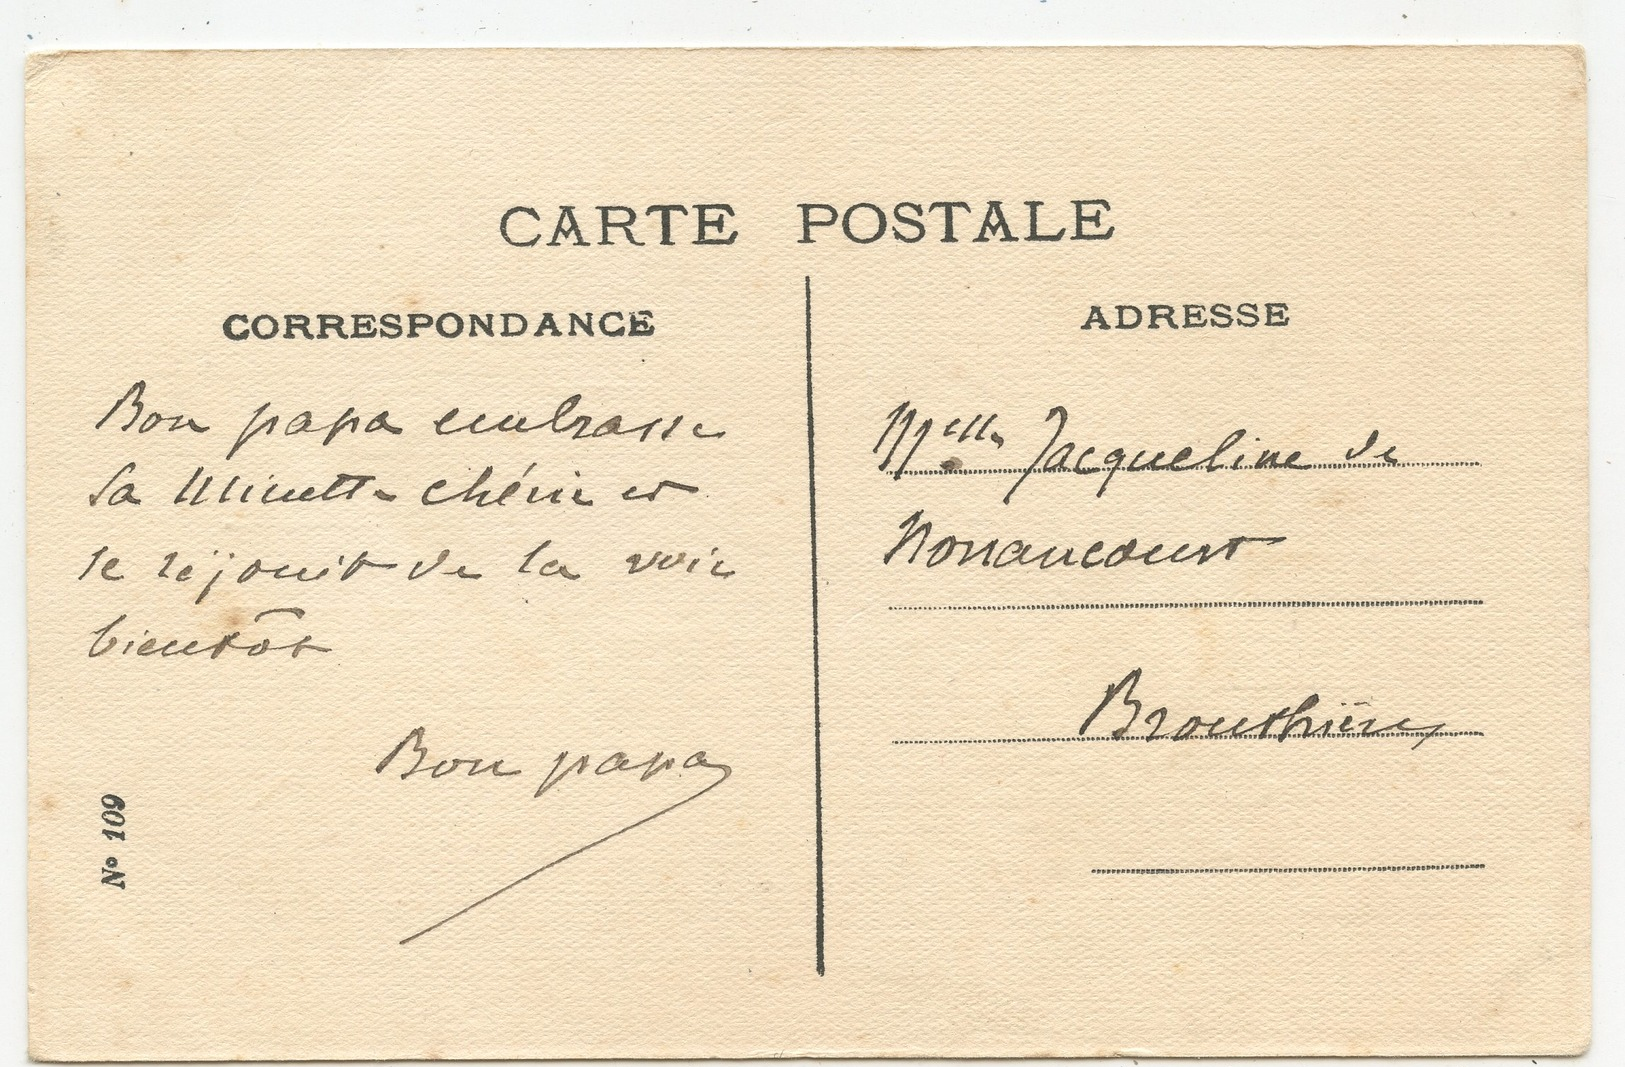 CARTE POSTALE
CORRESPONDANCE
Bon papa embrasse
sa Minette chérie et
se réjouit de la voir
bientôt
Bon papa
N° 109
ADRESSE
Melle Jacqueline de
Nonancourt